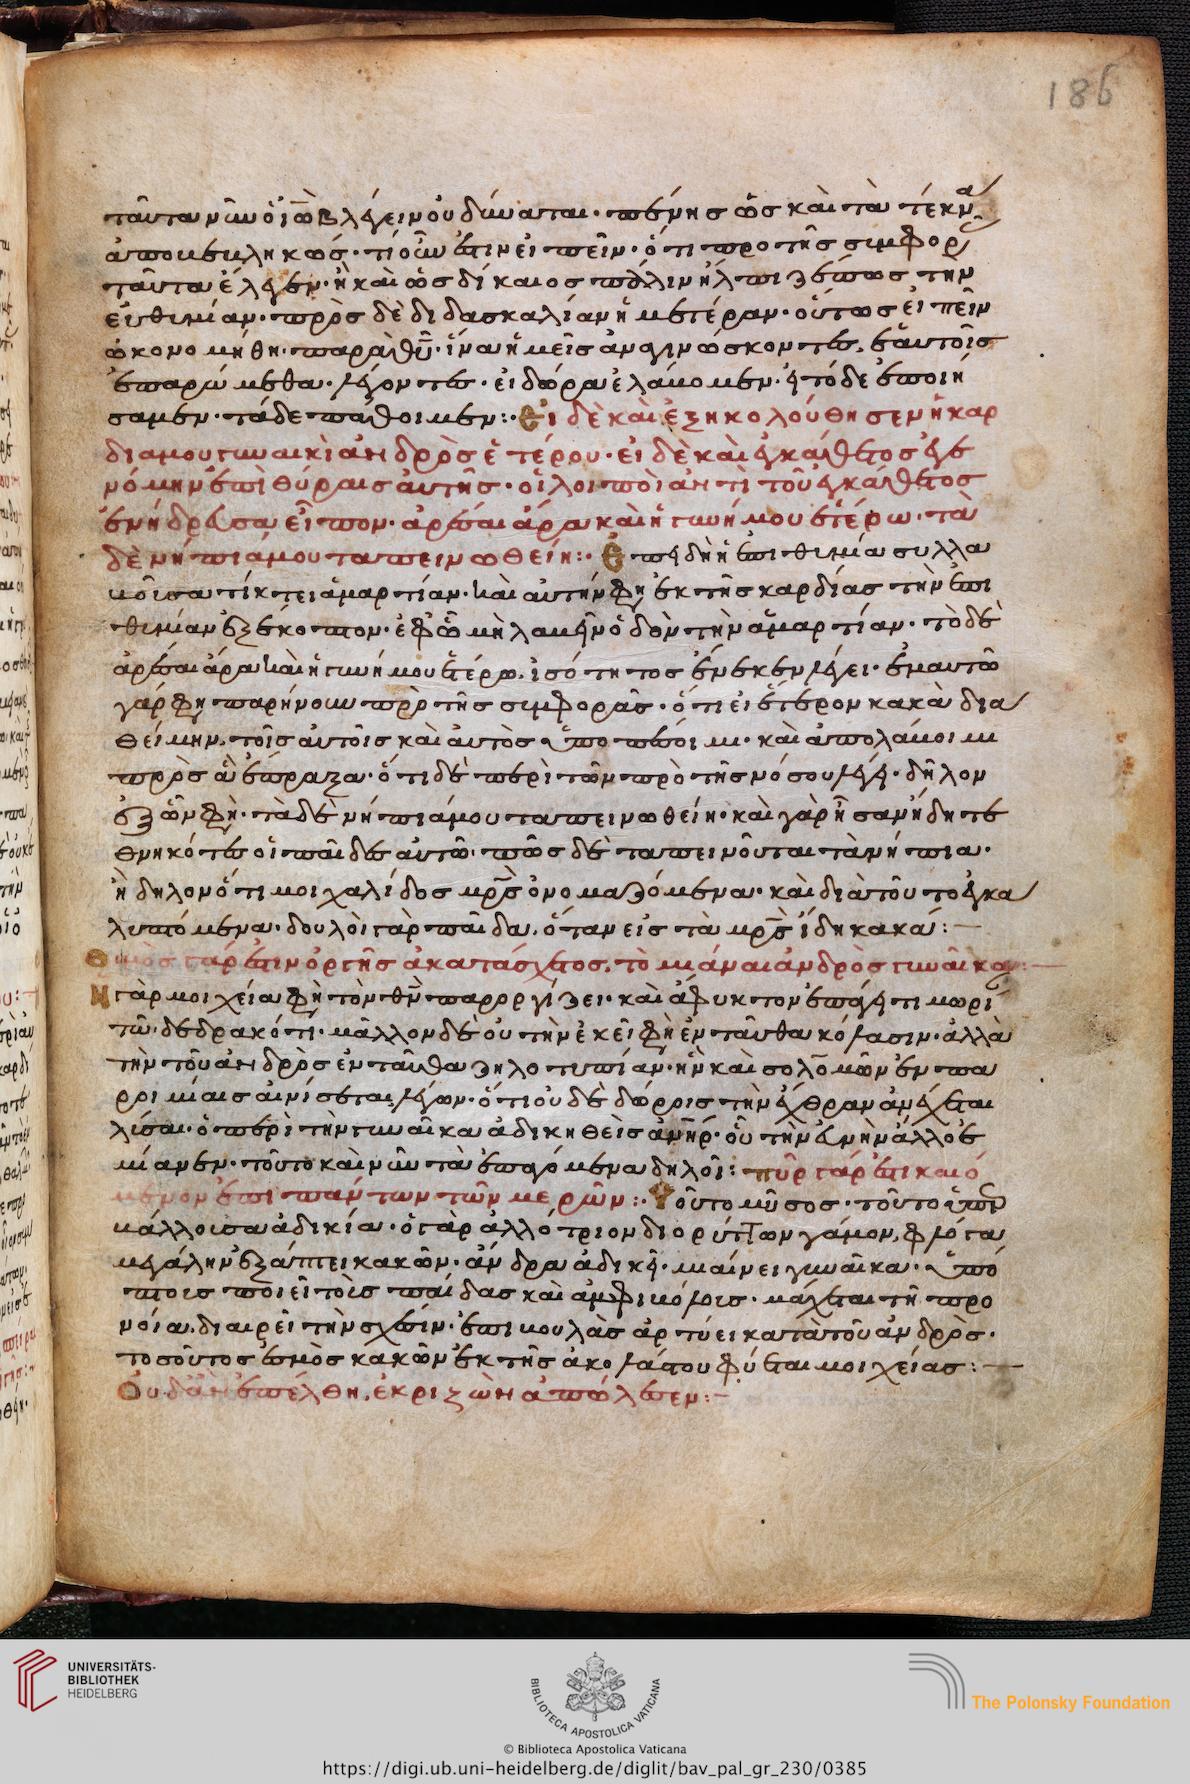 186
ταῦτα νῦν ὁ ἰὼβ λέγειν οὐ δύναται· πένης ὢς καὶ τὰ τέκνα
ἀποβεβληκώς· τί οὖν ἔστιν εἰπεῖν· ὅτι πρὸ τῆς συμφορ
ταῦτα ἔλεγεν· ἢ καὶ ὡς δίκαιος πάλιν ἤλπιζε πως τὴν
εὐθυμίαν· πρὸς δὲ διδασκαλίαν ἡμετέραν· οὕτως εἰπεῖν
ὠκονομήθη· παρὰ θῦ· ἵνα ἡμεῖς ἀναγινώσκοντες, ἑαυτοῖς
ἐπαρώμεθα· λέγοντες· εἰ δῶρα ἐλάβομεν· εἰ τόδε ἐποιή
σαμεν· τάδε πάθοιμεν:· Εἰ δὲ καὶ ἐξηκολούθησεν ἡ καρ
δία μου γυναικὶ ἀνδρὸς ἑτέρου· εἰ δὲ καὶ ἐγκάθετος ἐγε
νόμην ἐπὶ θύραις αὐτῆς· οἱ λοιποὶ ἀντὶ τοῦ ἐγκάθετος
ἐνήδρευσα εἶπον· ἀρέσαι ἄρα καὶ ἡ γυνή μου ἑτέρω· τὰ
δὲ νήπιά μου ταπεινωθείη:· Ἐπειδὴ ἡ ἐπιθυμία συλλα
βοῦσα τίκτει ἁμαρτίαν· καὶ αὐτήν φη ἐκ τῆς καρδίας τὴν ἐπι
θυμίαν ἐξέκοπτον· ἐφ' ὧ μὴ λαβεῖν ὁδὸν τὴν ἁμαρτίαν· τὸ δὲ
ἀρέσαι ἄρα καὶ ἡ γυνή μου ἑτέρω, ἰσότητος ἕνεκεν λέγει· ἐμαυτῶ
γάρ φη παρήνουν πρὸ τῆς συμφορᾶς· ὅτι εἰ ἕτερον κακὰ δια
θείμην, τοῖς αὐτοῖς καὶ αὐτὸς ὑποπέσοιμι· καὶ ἀπολάβοιμι
πρὸς ἃ ἔπραξα· ὅτι δὲ περὶ τῶν πρὸ τῆς νόσου λέγει· δῆλον
ἐξ ὧν φη· τὰ δὲ νήπιά μου ταπεινωθείη· καὶ γὰρ ἦσαν ἤδη τε
θνηκότες οἱ παῖδες αὐτῶ· πῶς δὲ ταπεινοῦται τὰ νήπια·
ἢ δηλονότι μοιχαλίδος μρς ὀνομαζόμενα· καὶ διὰ τοῦτο ἐγκα
λυπτόμενα· δουλοῖ γὰρ παῖδα, ὅταν εἰς τὰ μρς ἴδη κακά:—
Θυμὸς γάρ ἐστιν ὀργῆς ἀκατάσχετος, τὸ μιάναι ἀνδρὸς γυναῖκα:—
Ἡ γὰρ μοιχεία φη τὸν θν παροργίζει· καὶ ἄφυκτον ἐπάγει τιμωρί
τῶ δεδρακότι· μᾶλλον δὲ οὐ τὴν ἐκεῖ φη ἐνταῦθα κόλασιν· ἀλλὰ
τὴν τοῦ ἀνδρὸς ἐνταῦθα ζηλοτυπίαν· ἣν καὶ σολομῶν ἐν πα
ροιμίαις αἰνίσσεται λέγων· ὅτι οὐδὲ δώροις τὴν ἔχθραν ἀνέχεται
λῦσαι· ὁ περὶ τὴν γυναῖκα ἀδικηθεὶς ἀνήρ· οὗ τὴν εὐνὴν ἄλλος ἐ
μίανεν· τοῦτο καὶ νῦν τὰ ἐπαγόμενα δηλοῖ: πῦρ γάρ ἐστι καιό
μενον ἐπὶ πάντων τῶν μερῶν:· Τοῦτο μῦσος· τοῦτο ὑπερ
βάλλουσα ἀδικία· ὁ γὰρ ἀλλότριον διορύττων γάμον, φλόγα
μεγάλην ἐξάπτει κακῶν· ἄνδρα ἀδικεῖ· μιαίνει γυναῖκα· ὑπό
πτους ποιεῖ τοῖς παῖδας καὶ ἀμφιβόλους· μάχεται τῆ προ
νοία, διαιρεῖ τὴν σχέσιν· ἐπιβουλὰς ἀρτύει κατὰ τοῦ ἀνδρὸς·
τοσοῦτος ἐσμὸς κακῶν ἐκ τῆς ἀκολάστου φύεται μοιχείας:—
Οὗ δ' ἂν ἐπέλθη, ἐκ ριζῶν ἀπώλεσεν:—
UNIVERSITÄTS-
BIBLIOTHEK
HEIDELBERG
BIBLIOTECA APOSTOLICA VATICANA
The Polonsky Foundation
© Biblioteca Apostolica Vaticana
https://digi.ub.uni-heidelberg.de/diglit/bav_pal_gr_230/0385